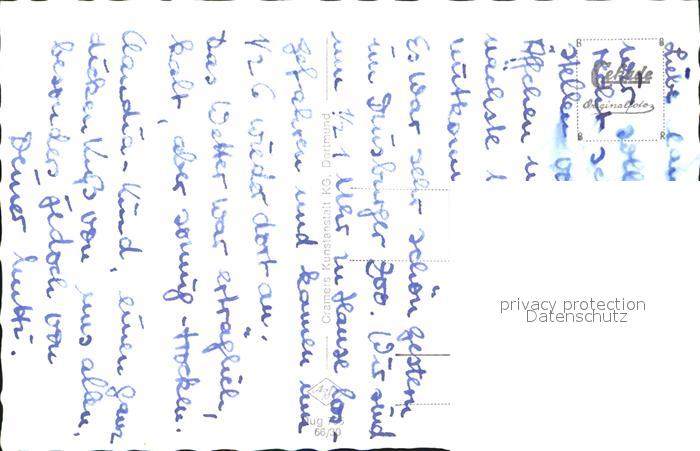 Liebe
nächste
mitkomm
Es war sehr schön gestern
im Duisburger Zoo. Wir sind
um 1/2 1 Uhr zu Hause los-
gefahren und kamen um
1/2 6 wieder dort an.
Das Wetter war erträglich,
kalt, aber sonnig-trocken.
Claudia-Kind, einen ganz
dicken Kuß von uns allen,
besonders jedoch von
Deiner Mutti.
Cekade
Originalfoto
Cramers Kunstanstalt KG. Dortmund
66/30
privacy protection
Datenschutz